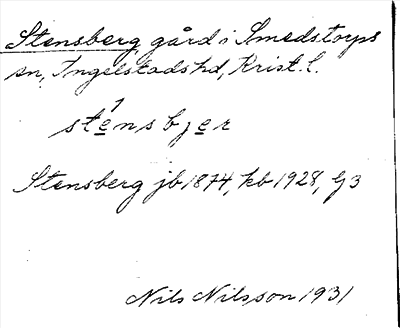 Stensberg, gård i Smedstorps
sn, Ingelstads hd, Krist. l.
sténsbjer
Stensberg jb 1874, kb 1928, G3
Nils Nilsson 1931